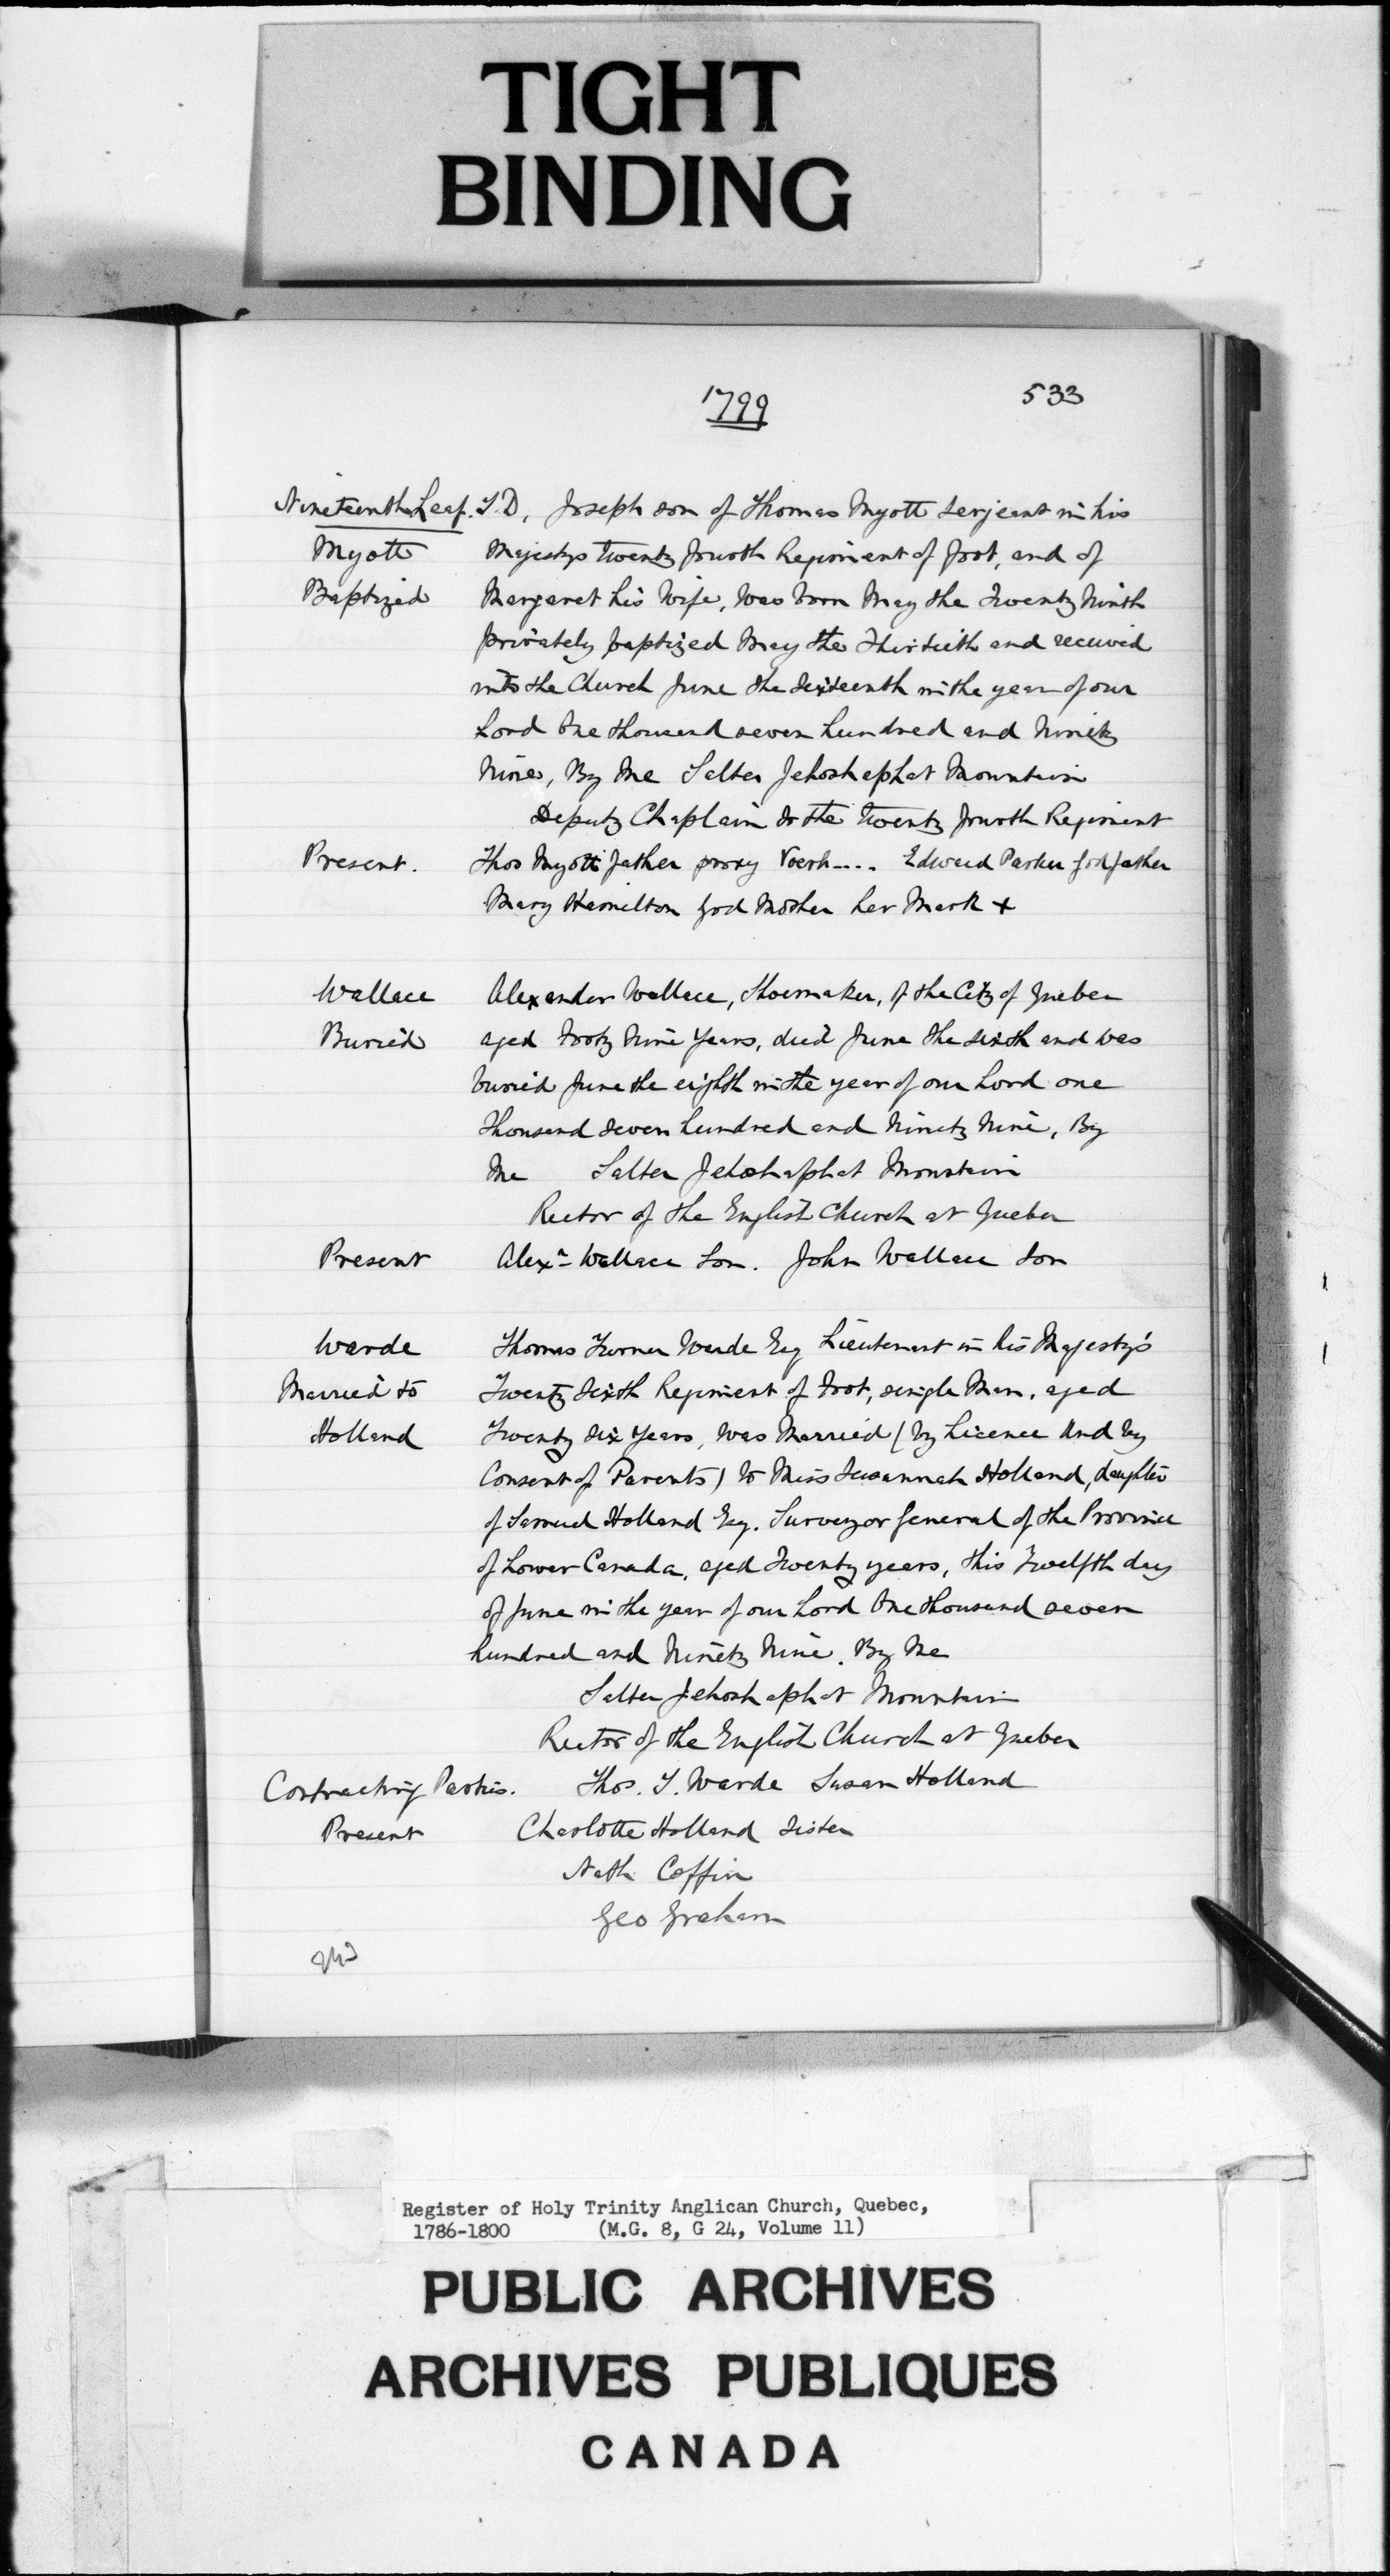 TIGHT
BINDING
1799 533
Nineteenth Leaf. T.D. Joseph son of Thomas Myott Serjeant in his
Myott Majestys Twenty fourth Regiment of foot, and of
Baptized Margaret his Wife, Was born May the Twenty Ninth
privately baptized May the Thirtieth and received
into the Church June the Sixteenth in the year of our
Lord One thousand seven hundred and Ninety
Nine, By Me Salter Jehoshaphat Mountain
Deputy Chaplain to the Twenty fourth Regiment
Present. Thos Myott father proxy .... Edward Parker Godfather
Mary Hamilton God Mother her Mark +
Wallace Alexander Wallace, Shoemaker, of the City of Quebec
Buried aged Forty Nine Years, died June the sixth and was
buried June the eighth in the year of our Lord one
Thousand Seven hundred and Ninety Nine, By
Me Salter Jehoshaphat Mountain
Rector of the English Church at Quebec
Present Alexr Wallace Son. John Wallace Son
Warde Thomas Turner Warde Esq Lieutenant in his Majesty's
Married to Twenty Sixth Regiment of Foot, single Man, aged
Holland Twenty six Years, was Married (by Licence And by
Consent of Parents) to Miss Susannah Holland, daughter
of Samuel Holland Esq. Surveyor General of the Province
of Lower Canada, aged Twenty years, this Twelfth day
of June in the year of our Lord One thousand seven
hundred and Ninety Nine. By Me
Salter Jehoshaphat Mountain
Rector of the English Church at Quebec
Contracting Parties. Thos. T. Warde Susan Holland
Present Charlotte Holland Sister
Nath Coffin
Geo Graham
Register of Holy Trinity Anglican Church, Quebec,
1786-1800 (M.G. 8, G 24, Volume 11)
PUBLIC ARCHIVES
ARCHIVES PUBLIQUES
CANADA